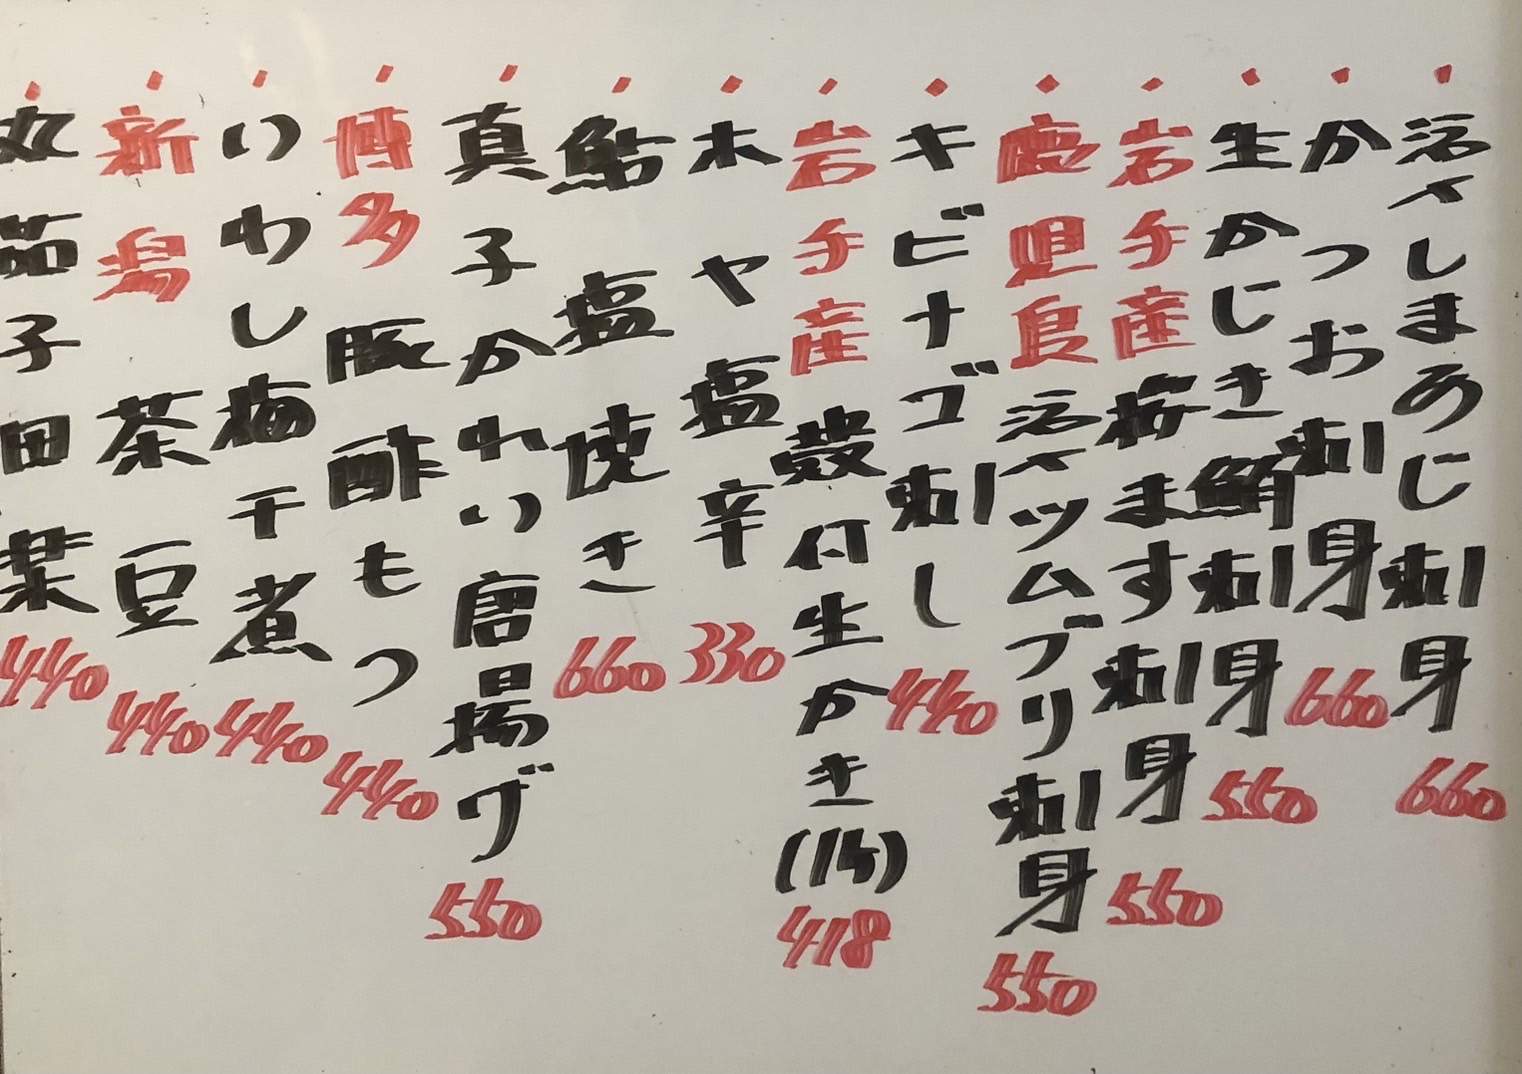 ・活〆しまあじ刺身 660
・かつお刺身 660
・生かじき鮪刺身 550
・岩手産桜ます刺身 550
・鹿児島活〆ツムブリ刺身 550
・キビナゴ刺し 440
・岩手産殻付生かき(1ケ) 418
・ホヤ塩辛 330
・鮎塩焼き 660
・真子かれい唐揚げ 550
・博多 豚酢もつ 440
・いわし梅干煮 440
・新潟 茶豆 440
・丸茄子田楽 440